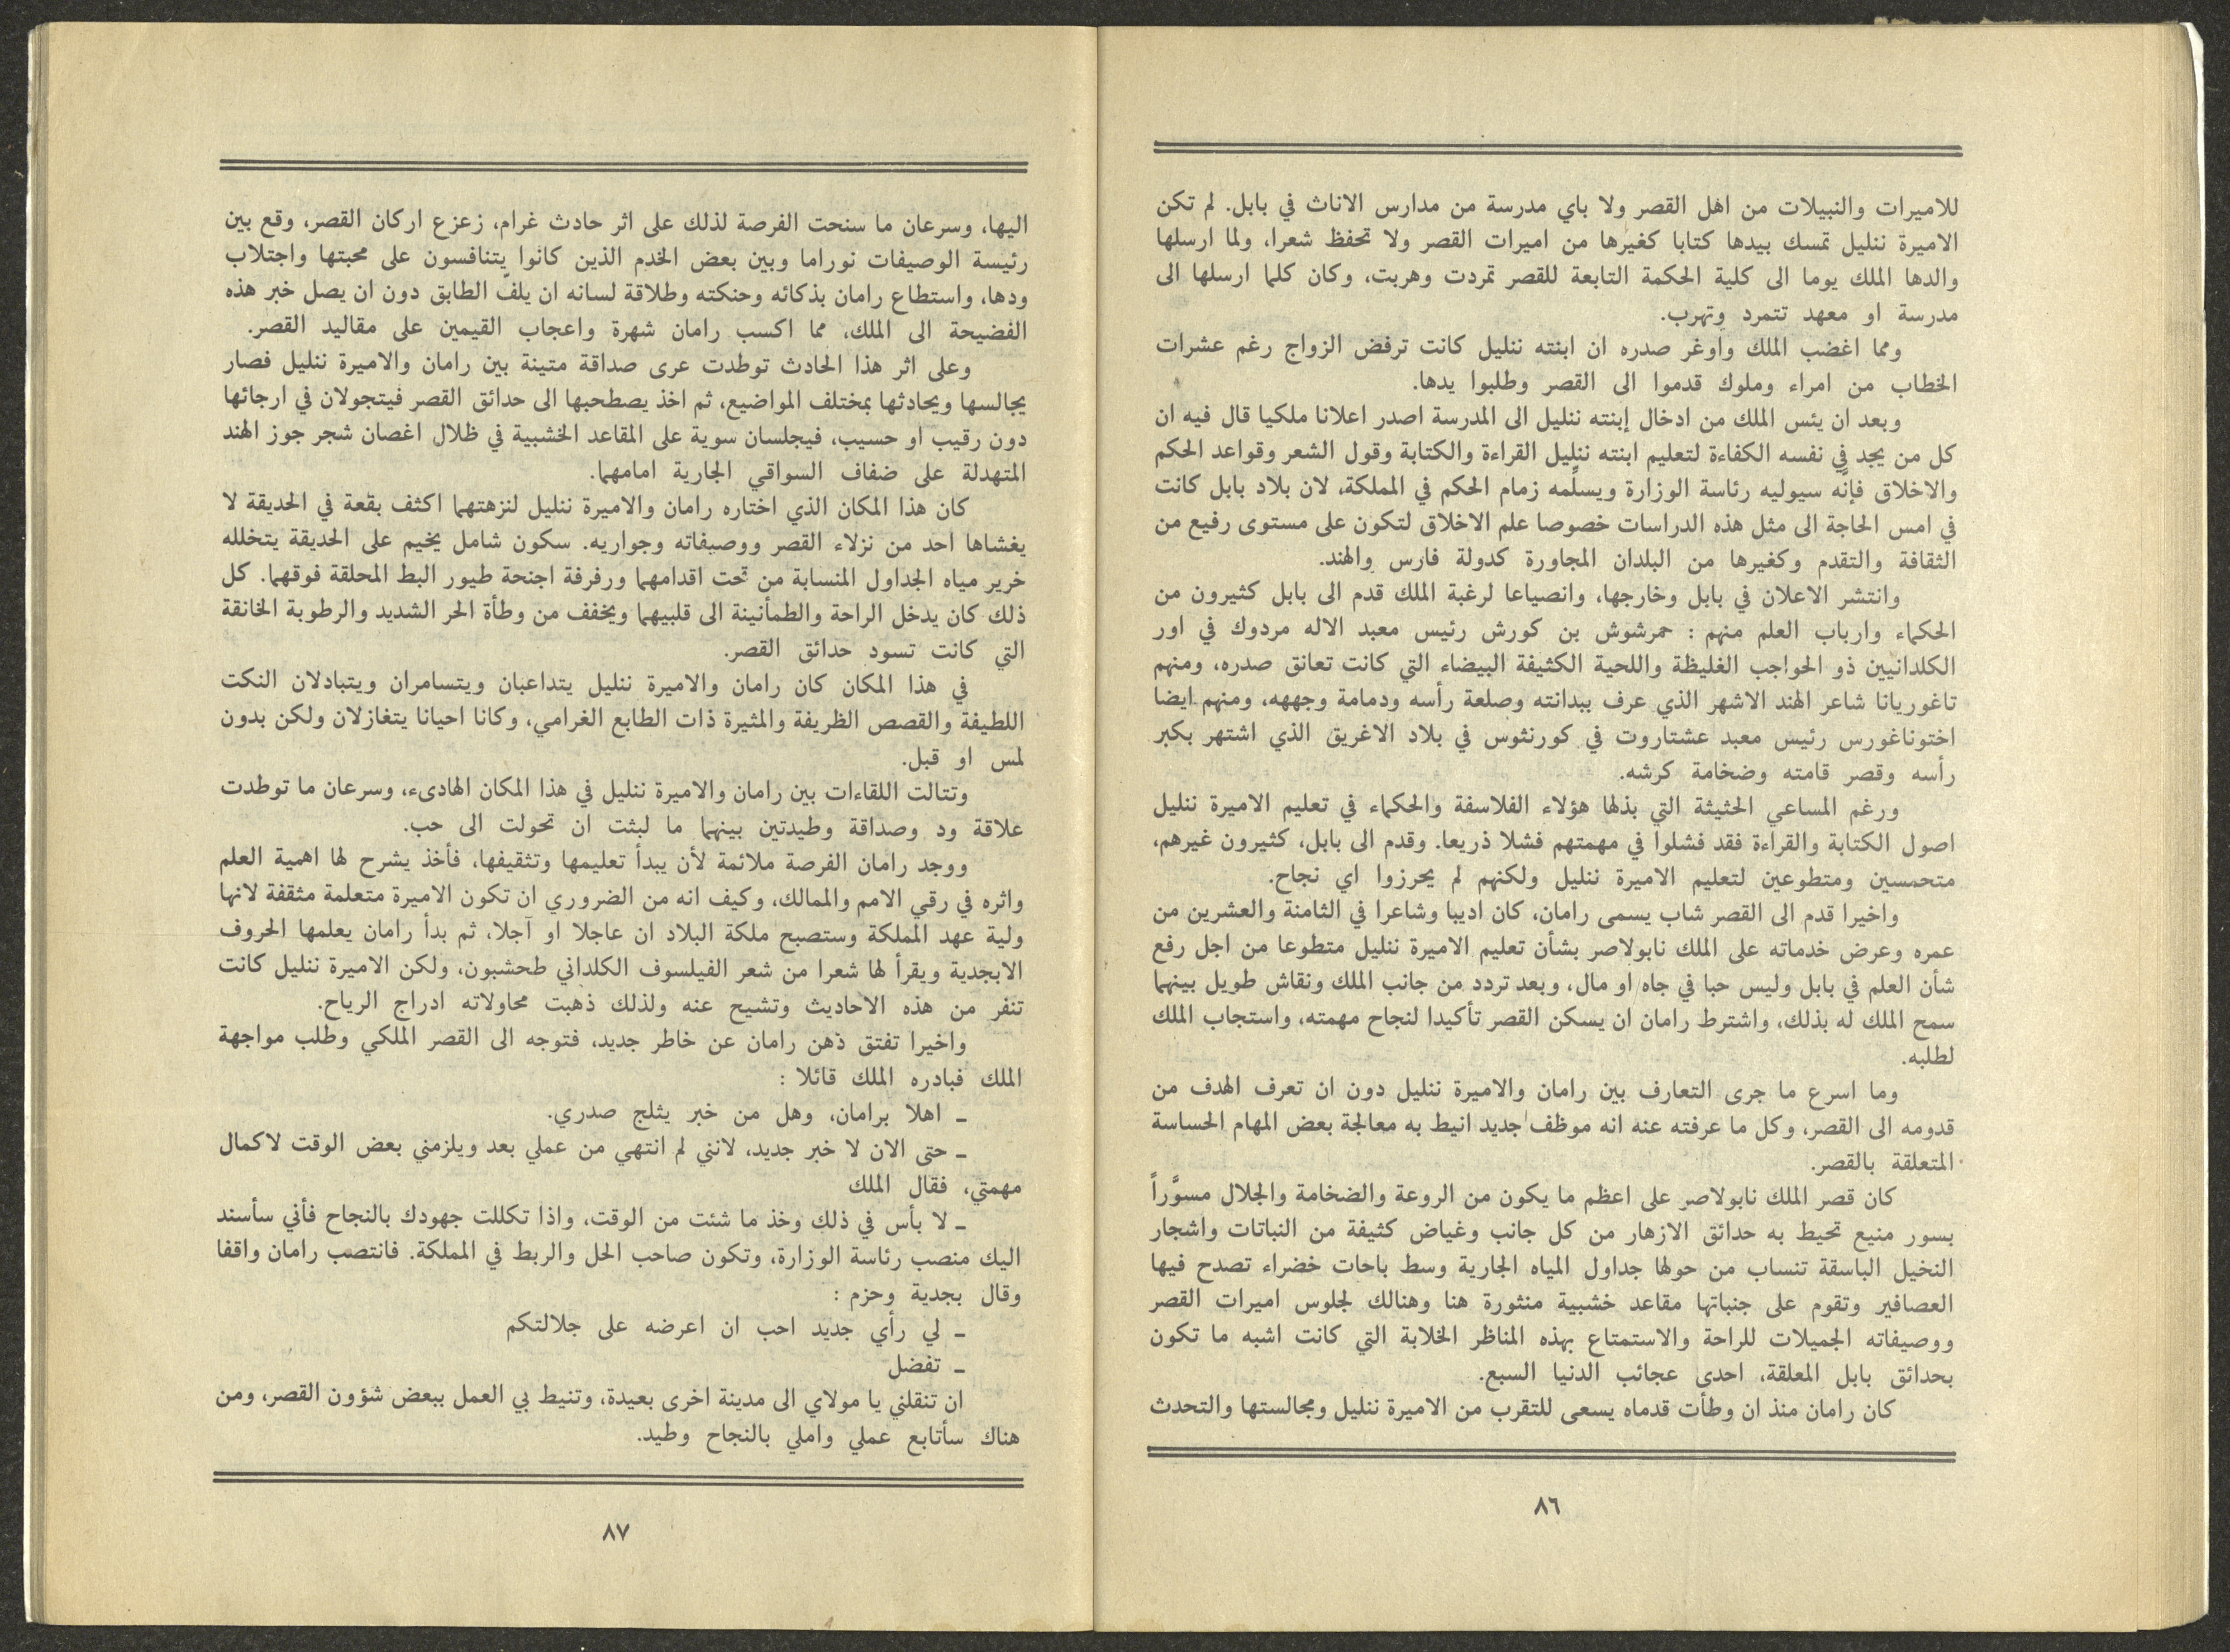 للاميرات والنبيلات من اهل القصر ولا باي مدرسة من مدارس الاناث في بابل. لم تكن
الاميرة ننليل تمسك بيدها كتابا كغيرها من اميرات القصر ولا تحفظ شعرا، ولما ارسلها
والدها الملك يوما الى كلية الحكمة التابعة للقصر تمردت وهربت، وكان كلما ارسلها الى
مدرسة او معهد تتمرد وتهرب.
ومما اغضب الملك واوغر صدره ان ابنته ننليل كانت ترفض الزواج رغم عشرات
الخطاب من امراء وملوك قدموا الى القصر وطلبوا يدها.
وبعد ان يئس الملك من ادخال إبنته ننليل الى المدرسة اصدر اعلانا ملكيا قال فيه ان
كل من يجد في نفسه الكفاءة لتعليم ابنته ننليل القراءة والكتابة وقول الشعر وقواعد الحكم
والاخلاق فإنّه سيوليه رئاسة الوزارة ويسلّمه زمام الحكم في المملكة، لان بلاد بابل كانت
في امس الحاجة الى مثل هذه الدراسات خصوصا علم الاخلاق لتكون على مستوى رفيع من
الثقافة والتقدم وكغيرها من البلدان المجاورة كدولة فارس والهند.
وانتشر الاعلان في بابل وخارجها، وانصياعا لرغبة الملك قدم الى بابل كثيرون من
الحكماء وارباب العلم منهم : حمرشوش بن كورش رئيس معبد الاله مردوك في اور
الكلدانيين ذو الحواجب الغليظة واللحية الكثيفة البيضاء التي كانت تعانق صدره، ومنهم
تاغوريانا شاعر الهند الاشهر الذي عرف ببدانته وصلعة رأسه ودمامة وجهه، ومنهم ايضا
اختوناغورس رئيس معبد عشتاروت في كورنثوس في بلاد الاغريق الذي اشتهر بكبر
رأسه وقصر قامته وضخامة كرشه.
ورغم المساعي الحثيثة التي بذلها هؤلاء الفلاسفة والحكماء في تعليم الاميرة ننليل
اصول الكتابة والقراءة فقد فشلوا في مهمتهم فشلا ذريعا. وقدم الى بابل، كثيرون غيرهم،
متحمسين ومتطوعين لتعليم الاميرة ننليل ولكنهم لم يحرزوا اي نجاح.
واخيرا قدم الى القصر شاب يسمى رامان، كان اديبا وشاعرا في الثامنة والعشرين من
عمره وعرض خدماته على الملك نابولاصر بشأن تعليم الاميرة ننليل متطوعا من اجل رفع
شأن العلم في بابل وليس حبا في جاه او مال، وبعد تردد من جانب الملك ونقاش طويل بينهما
سمح الملك له بذلك، واشترط رامان ان يسكن القصر تأكيدا لنجاح مهمته، واستجاب الملك
لطلبه.
وما اسرع ما جرى التعارف بين رامان والاميرة ننليل دون ان تعرف الهدف من
قدومه الى القصر، وكل ما عرفته عنه انه موظف جديد انيط به معالجة بعض المهام الحساسة
المتعلقة بالقصر.
كان قصر الملك نابولاصر على اعظم ما يكون من الروعة والضخامة والجلال مسوَّراً
بسور منيع تحيط به حدائق الازهار من كل جانب وغياض كثيفة من النباتات واشجار
النخيل الباسقة تنساب من حولها جداول المياه الجارية وسط باحات خضراء تصدح فيها
العصافير وتقوم على جنباتها مقاعد خشبية منثورة هنا وهنالك لجلوس اميرات القصر
ووصيفاته الجميلات للراحة والاستمتاع بهذه المناظر الخلابة التي كانت اشبه ما تكون
بحدائق بابل المعلقة، احدى عجائب الدنيا السبع.
كان رامان منذ ان وطأت قدماه يسعى للتقرب من الاميرة ننليل ومجالستها والتحدث
٨٦
اليها، وسرعان ما سنحت الفرصة لذلك على اثر حادث غرام، زعزع اركان القصر، وقع بين
رئيسة الوصيفات نوراما وبين بعض الخدم الذين كانوا يتنافسون على محبتها واجتلاب
ودها، واستطاع رامان بذكائه وحنكته وطلاقة لسانه ان يلفّ الطابق دون ان يصل خبر هذه
الفضيحة الى الملك، مما اكسب رامان شهرة واعجاب القيمين على مقاليد القصر.
وعلى اثر هذا الحادث توطدت عرى صداقة متينة بين رامان والاميرة ننليل فصار
يجالسها ويحادثها بمختلف المواضيع، ثم اخذ يصطحبها الى حدائق القصر فيتجولان في ارجائها
دون رقيب او حسيب، فيجلسان سوية على المقاعد الخشبية في ظلال اغصان شجر جوز الهند
المتهدلة على ضفاف السواقي الجارية امامهما.
كان هذا المكان الذي اختاره رامان والاميرة ننليل لنزهتهما اكثف بقعة في الحديقة لا
يغشاها احد من نزلاء القصر ووصيفاته وجواريه. سكون شامل يخيم على الحديقة يتخلله
خرير مياه الجداول المنسابة من تحت اقدامهما ورفرفة اجنحة طيور البط المحلقة فوقهما. كل
ذلك كان يدخل الراحة والطمأنينة الى قلبيهما ويخفف من وطأة الحر الشديد والرطوبة الخانقة
التي كانت تسود حدائق القصر.
في هذا المكان كان رامان والاميرة ننليل يتداعبان ويتسامران ويتبادلان النكت
اللطيفة والقصص الظريفة والمثيرة ذات الطابع الغرامي، وكانا احيانا يتغازلان ولكن بدون
لمس او قبل.
وتتالت اللقاءات بين رامان والاميرة ننليل في هذا المكان الهادىء، وسرعان ما توطدت
علاقة ود وصداقة وطيدتين بينهما ما لبثت ان تحولت الى حب.
ووجد رامان الفرصة ملائمة لأن يبدأ تعليمها وتثقيفها، فأخذ يشرح لها اهمية العلم
واثره في رقي الامم والممالك، وكيف انه من الضروري ان تكون الاميرة متعلمة مثقفة لانها
ولية عهد المملكة وستصبح ملكة البلاد ان عاجلا او آجلا، ثم بدأ رامان يعلمها الحروف
الابجدية ويقرأ لها شعرا من شعر الفيلسوف الكلداني طحشبون، ولكن الاميرة ننليل كانت
تنفر من هذه الاحاديث وتشيح عنه ولذلك ذهبت محاولاته ادراج الرياح.
واخيرا تفتق ذهن رامان عن خاطر جديد، فتوجه الى القصر الملكي وطلب مواجهة
الملك فبادره الملك قائلا :
ـ اهلا برامان، وهل من خبر يثلج صدري.
ـ حتى الان لا خبر جديد، لانني لم انتهي من عملي بعد ويلزمني بعض الوقت لاكمال
مهمتي، فقال الملك
ـ لا بأس في ذلك وخذ ما شئت من الوقت، واذا تكللت جهودك بالنجاح فأني سأسند
اليك منصب رئاسة الوزارة، وتكون صاحب الحل والربط في المملكة. فانتصب رامان واقفا
وقال بجدية وحزم :
ـ لي رأي جديد احب ان اعرضه على جلالتكم
ـ تفضل
ان تنقلني يا مولاي الى مدينة اخرى بعيدة، وتنيط بي العمل ببعض شؤون القصر، ومن
هناك سأتابع عملي واملي بالنجاح وطيد.
٨٧